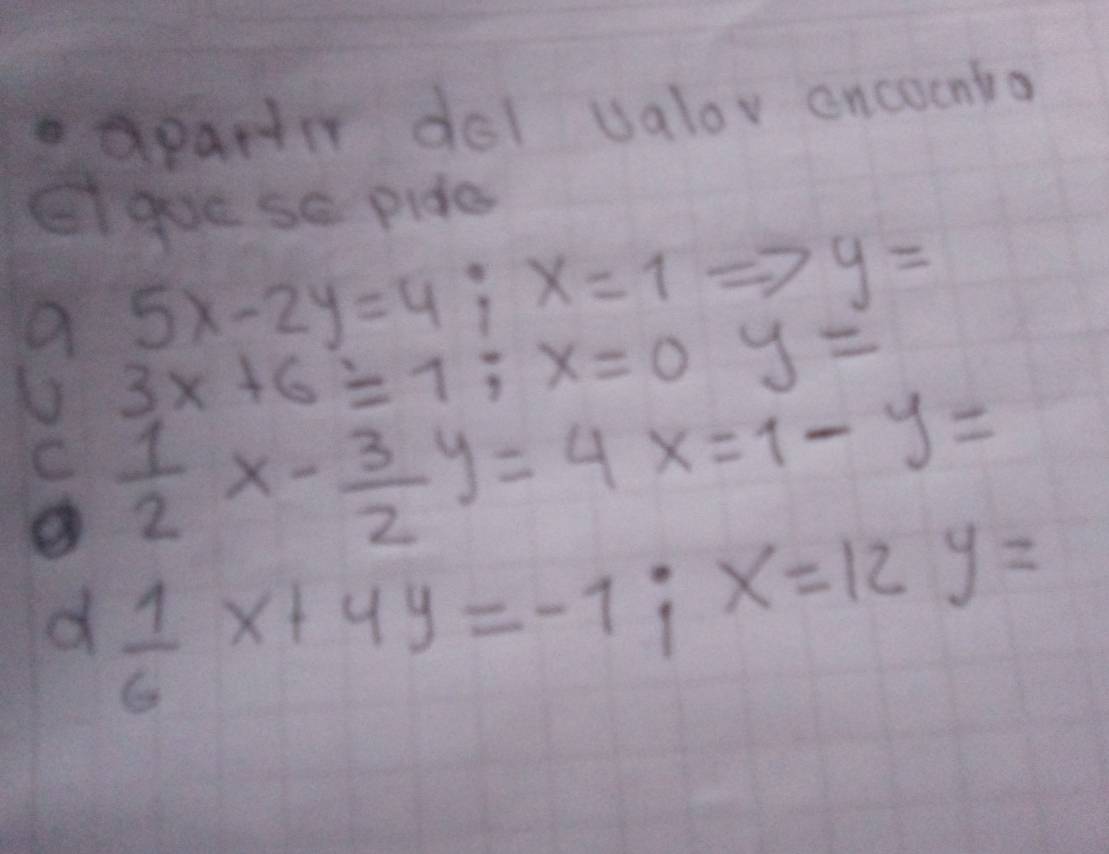 • apartir del valor encuentro
el que se pide
a 5x-2y=4; x=1 => y=
b 3x+6=1; x=0 y=
c 1/2 x - 3/2 y = 4 x=1- y=
d 1/6 x+4y=-1; x=12 y=